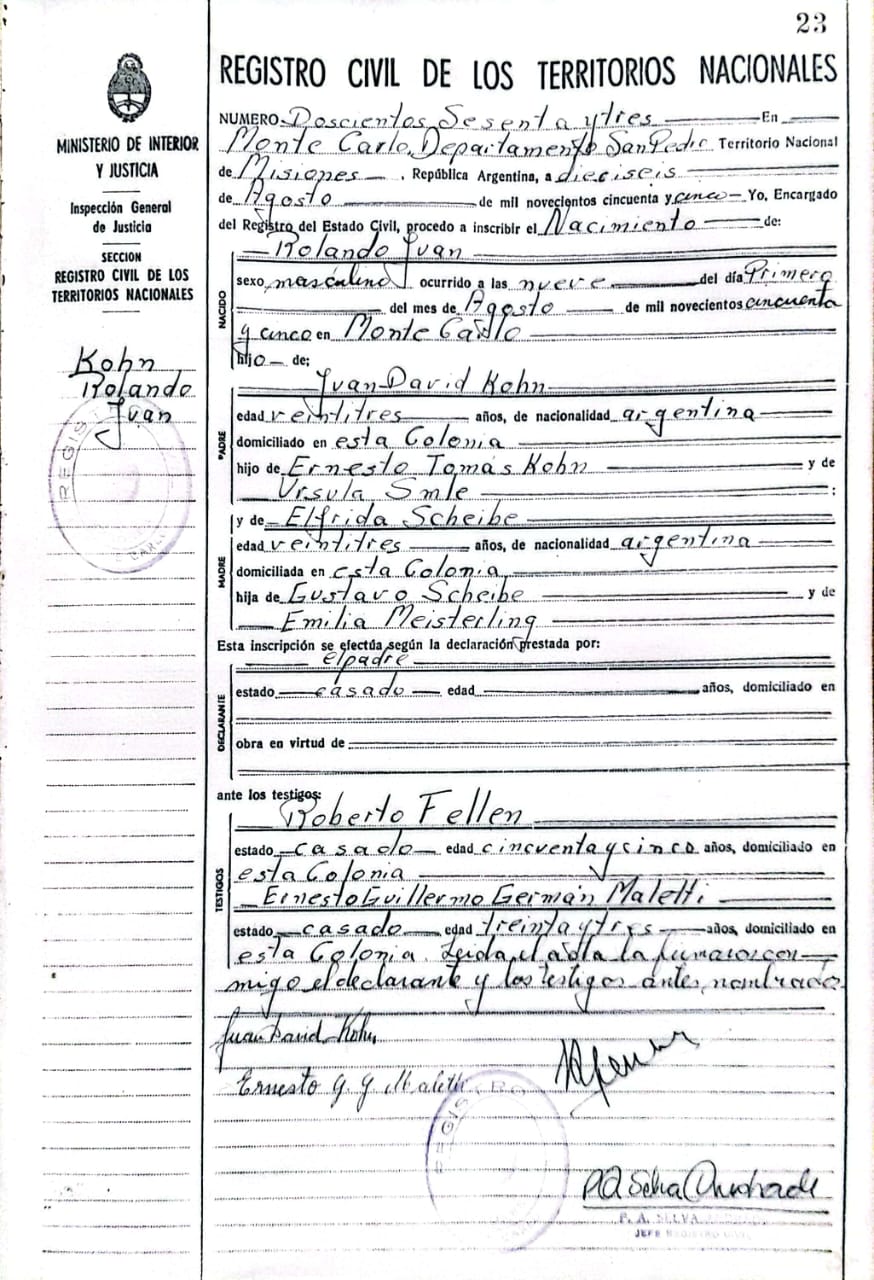 23
REGISTRO CIVIL DE LOS TERRITORIOS NACIONALES
MINISTERIO DE INTERIOR
Y JUSTICIA
Inspección General
de Justicia
SECCION
REGISTRO CIVIL DE LOS
TERRITORIOS NACIONALES
Kohn
Rolando
Juan
REGIST
NUMERO Doscientos Sesenta y tres En
Monte Carlo, Departamento San Pedro Territorio Nacional
de Misiones, República Argentina, a dieciseis
de Agosto de mil novecientos cincuenta y cinco Yo, Encargado
del Registro del Estado Civil, procedo a inscribir el Nacimiento de:
NACIDO
Rolando Juan
sexo masculino ocurrido a las nueve del día Primero
del mes de Agosto de mil novecientos cincuenta
y cinco en Monte Carlo
hijo de;
PADRE
Juan David Kohn
edad veintitres años, de nacionalidad argentina
domiciliado en esta Colonia
hijo de Ernesto Tomás Kohn y de
Ursula Smle ;
MADRE
y de Elfrida Scheibe
edad veintitres años, de nacionalidad argentina
domiciliada en esta Colonia
hija de Gustavo Scheibe y de
Emilia Meisterling
Esta inscripción se efectúa según la declaración prestada por:
DECLARANTE
el padre
estado casado edad años, domiciliado en
obra en virtud de
ante los testigos:
TESTIGOS
Roberto Fellen
estado casado edad cincuenta y cinco años, domiciliado en
esta Colonia
Ernesto Guillermo Germán Maletti
estado casado edad treinta y tres años, domiciliado en
esta Colonia. Leida el acta la firmaron con
migo el declarante y los testigos antes nombrados
Juan David Kohn
Ernesto G. G. Maletti
REGISTRO
P. A. SELVA
JEFE REGISTRO CIVIL